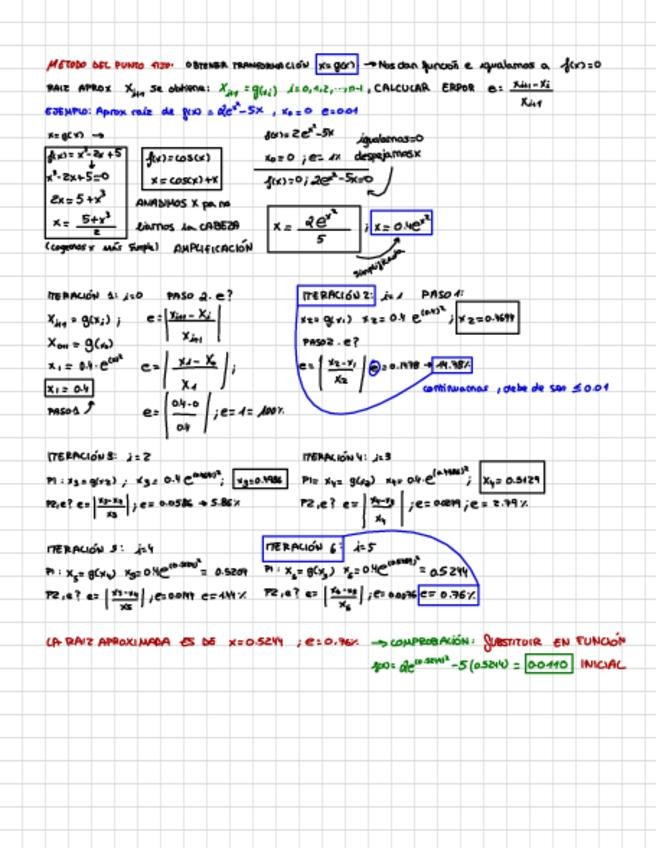 MÉTODO DEL PUNTO FIJO: OBTENER TRANSFORMACIÓN x=g(x) → Nos dan función e igualamos a f(x)=0
RAIZ APROX Xᵢ₊₁ se obtiene: Xᵢ₊₁ = g(xᵢ) i=0,1,2,...,n-1, CALCULAR ERROR e= (xᵢ₊₁-xᵢ)/xᵢ₊₁
EJEMPLO: Aprox raíz de f(x) = 2e^x²-5x , x₀=0 e=0.01
x=g(x) →
f(x)=x³-2x+5
x³-2x+5=0
2x=5+x³
x= (5+x³)/2
(cogemos x más simple)
f(x)=cos(x)
x=cos(x)+x
AÑADIMOS X para
liarnos la CABEZA
AMPLIFICACIÓN
f(x)=2e^x²-5x
x₀=0 ; e=1%
igualamos=0
despejamos x
f(x)=0; 2e^x²-5x=0
x= 2e^x²/5 ; x=0.4e^x²
simplificada
ITERACIÓN 1: i=0 PASO 2. e?
Xᵢ₊₁=g(xᵢ); e=|(xᵢ₊₁-xᵢ)/xᵢ₊₁|
X₀₊₁=g(x₀)
x₁=0.4·e^(0)² e=|(x₁-x₀)/x₁|;
x₁=0.4
PASO 1
e=|(0.4-0)/0.4|; e=1=100%
ITERACIÓN 2: i=1 PASO 1:
x₂=g(x₁) x₂=0.4 e^(0.4)²; x₂=0.4694
PASO 2. e?
e=|(x₂-x₁)/x₂| e=0.1478 → 14.78%
continuamos, debe de ser ≤0.01
ITERACIÓN 3: i=2
P1: x₃=g(x₂); x₃=0.4e^(0.4694)²; x₃=0.4986
P2, e? e=|(x₃-x₂)/x₃|; e=0.0586 → 5.86%
ITERACIÓN 4: i=3
P1= x₄=g(x₃) x₄=0.4·e^(0.4986)²; x₄=0.5129
P2, e? e=|(x₄-x₃)/x₄|; e=0.0279; e=2.79%
ITERACIÓN 5: i=4
P1: x₅=g(x₄) = 0.5204
P2, e? ; e=
ITERACIÓN 6: i=5
P1: x₆=g(x₅) x₆=0.4e = 0.5244
P2, e? ; e=0.0076 e=0.76%
LA RAIZ APROXIMADA ES DE x=0.5244 ; e=0.76% → COMPROBACIÓN: SUBSTITUIR EN FUNCIÓN
f(x)=2e^(0.5244)²-5(0.5244) = 0.0110 INICIAL